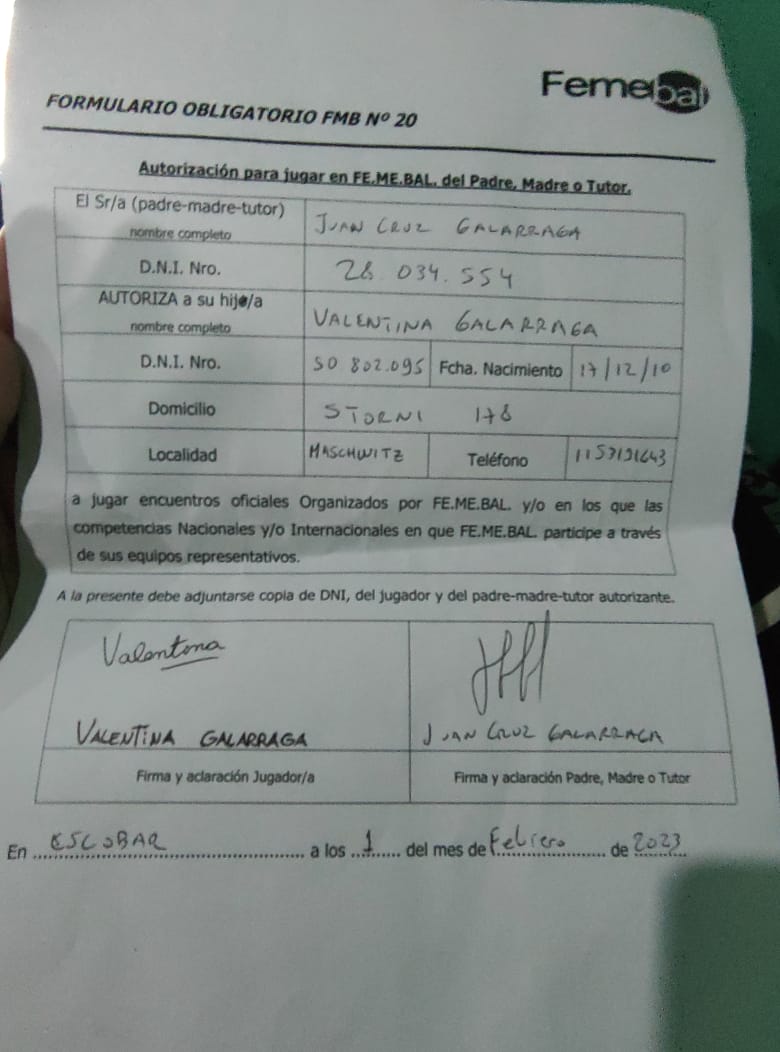 Femebal
FORMULARIO OBLIGATORIO FMB Nº 20
Autorización para jugar en FE.ME.BAL. del Padre, Madre o Tutor.
El Sr/a (padre-madre-tutor) nombre completo JUAN CRUZ GALARRAGA
D.N.I. Nro. 28.034.554
AUTORIZA a su hijo/a nombre completo VALENTINA GALARRAGA
D.N.I. Nro. 50 802.095 Fcha. Nacimiento 17/12/10
Domicilio STORNI 178
Localidad MASCHWITZ Teléfono
a jugar encuentros oficiales Organizados por FE.ME.BAL. y/o en los que las
competencias Nacionales y/o Internacionales en que FE.ME.BAL. participe a través
de sus equipos representativos.
A la presente debe adjuntarse copia de DNI, del jugador y del padre-madre-tutor autorizante.
Valentina
VALENTINA GALARRAGA JUAN CRUZ GALARRAGA
Firma y aclaración Jugador/a Firma y aclaración Padre, Madre o Tutor
En ESCOBAR a los 1 del mes de Febrero de 2023